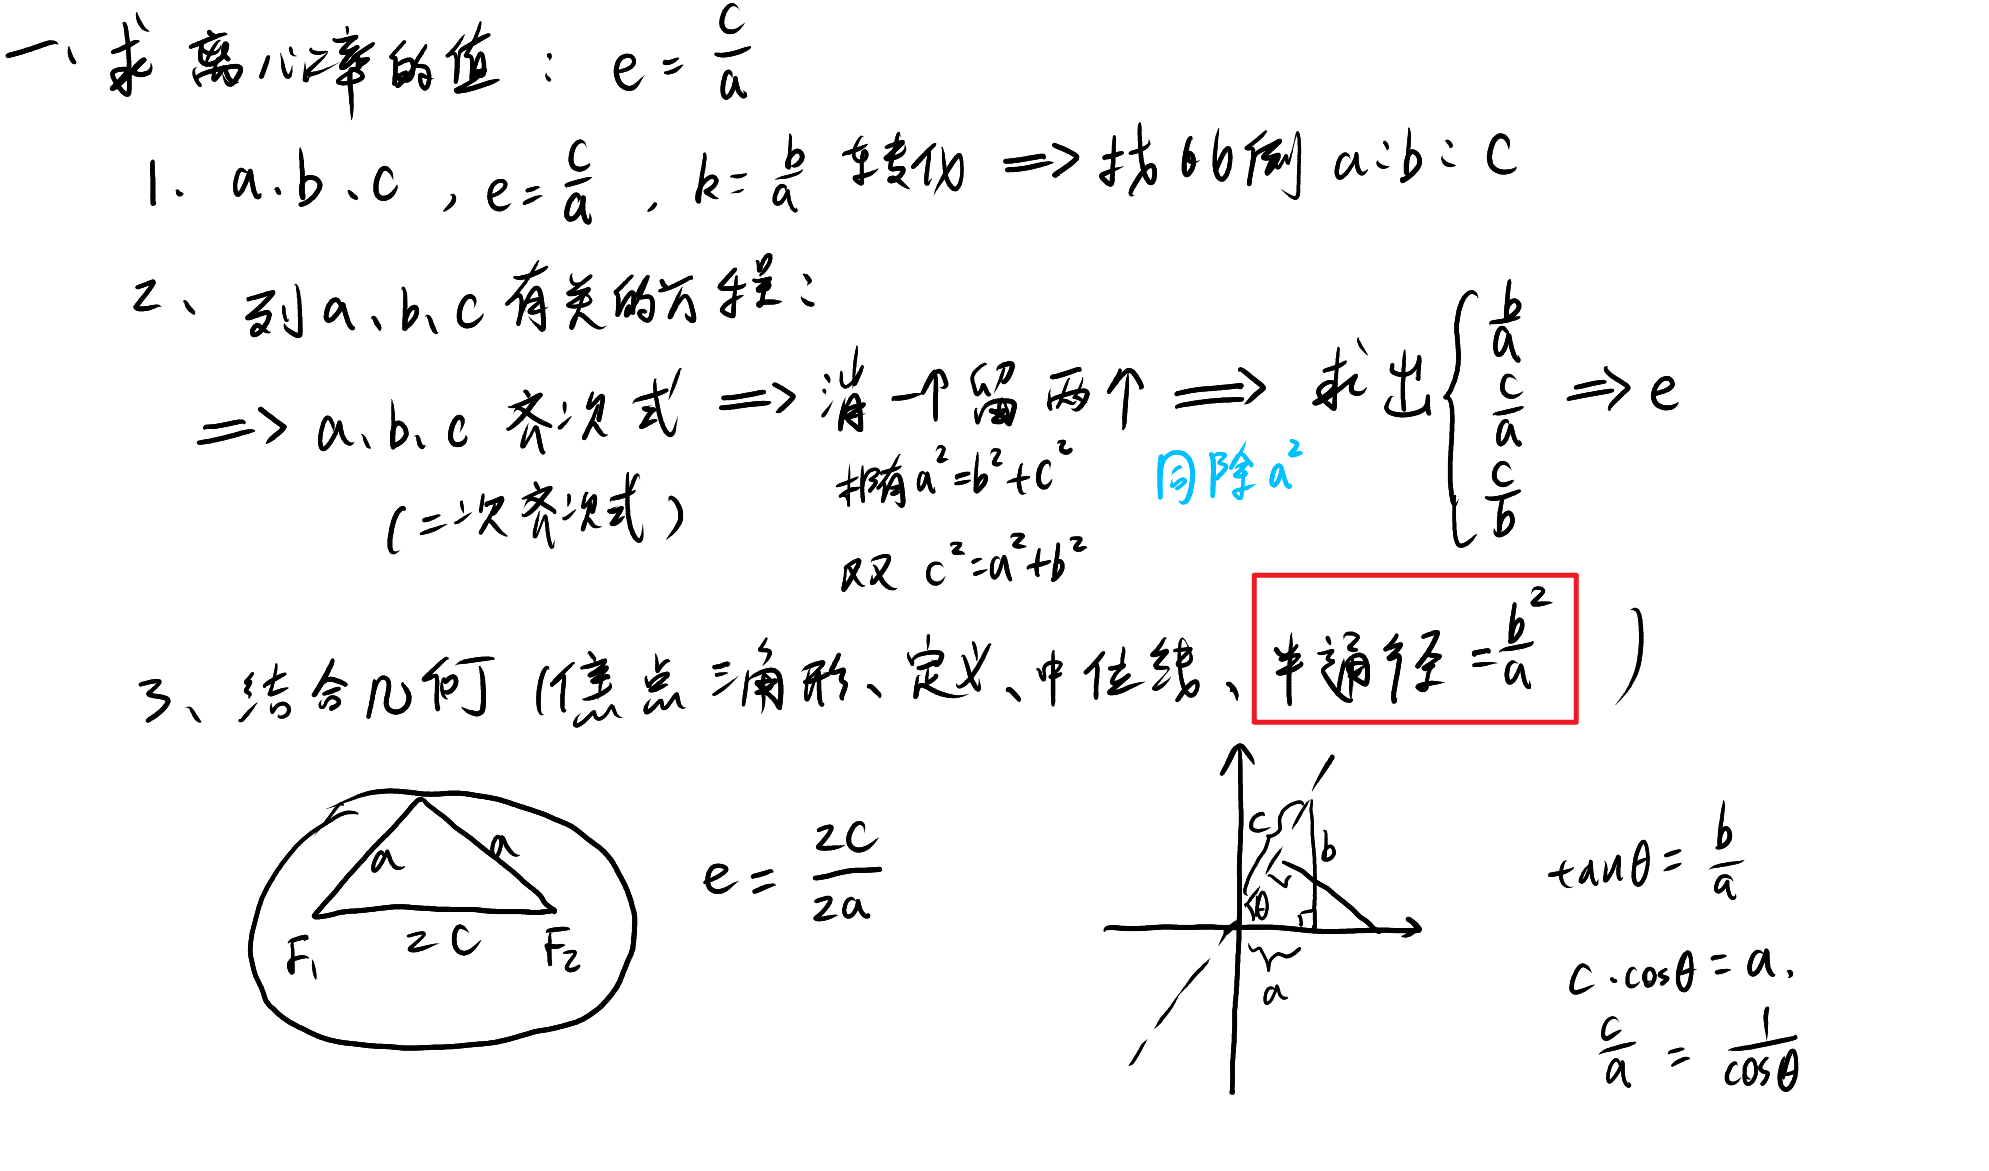 一、求离心率的值：e = c/a
1. a、b、c，e = c/a，k = b/a 转化 => 找比例 a:b:c
2、列a、b、c有关的方程：
=> a、b、c 齐次式 => 消一个留两个 => 求出 { b/a c/a c/b => e
（二次齐次式） 椭 a²=b²+c² 同除a²
双 c²=a²+b²
3、结合几何（焦点三角形、定义、中位线、半通径 = b²/a ）
a a
F₁ 2c F₂
e = 2c/2a
c b
θ
a
tanθ = b/a
c·cosθ = a.
c/a = 1/cosθ